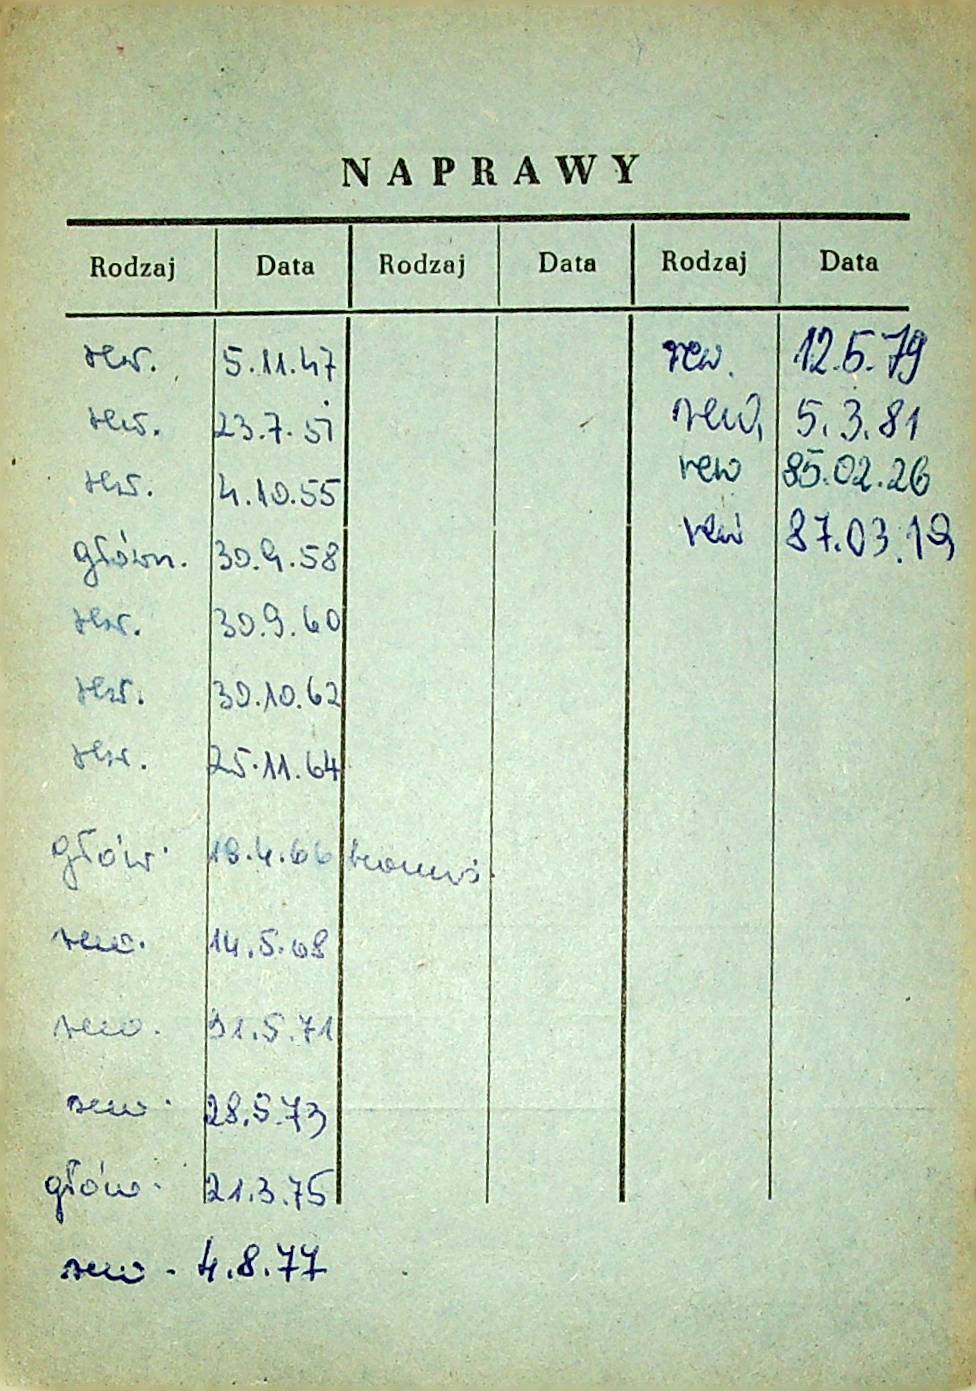 NAPRAWY
Rodzaj Data Rodzaj Data Rodzaj Data
rew. 5.11.47 rew. 12.5.79
rew. 23.7.51 rew. 5.3.81
rew. 4.10.55 rew 85.02.26
główn. 30.9.58 rew 87.03.19
rew. 30.9.60
rew. 30.10.62
rew. 25.11.64
głów. 18.4.66
rew. 14.5.68
rew. 31.5.71
rew. 28.5.73
głów. 21.3.75
rew. 4.8.77